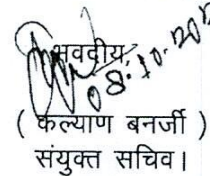 भवदीय,
08.10.202
( कल्याण बनर्जी )
संयुक्त सचिव।